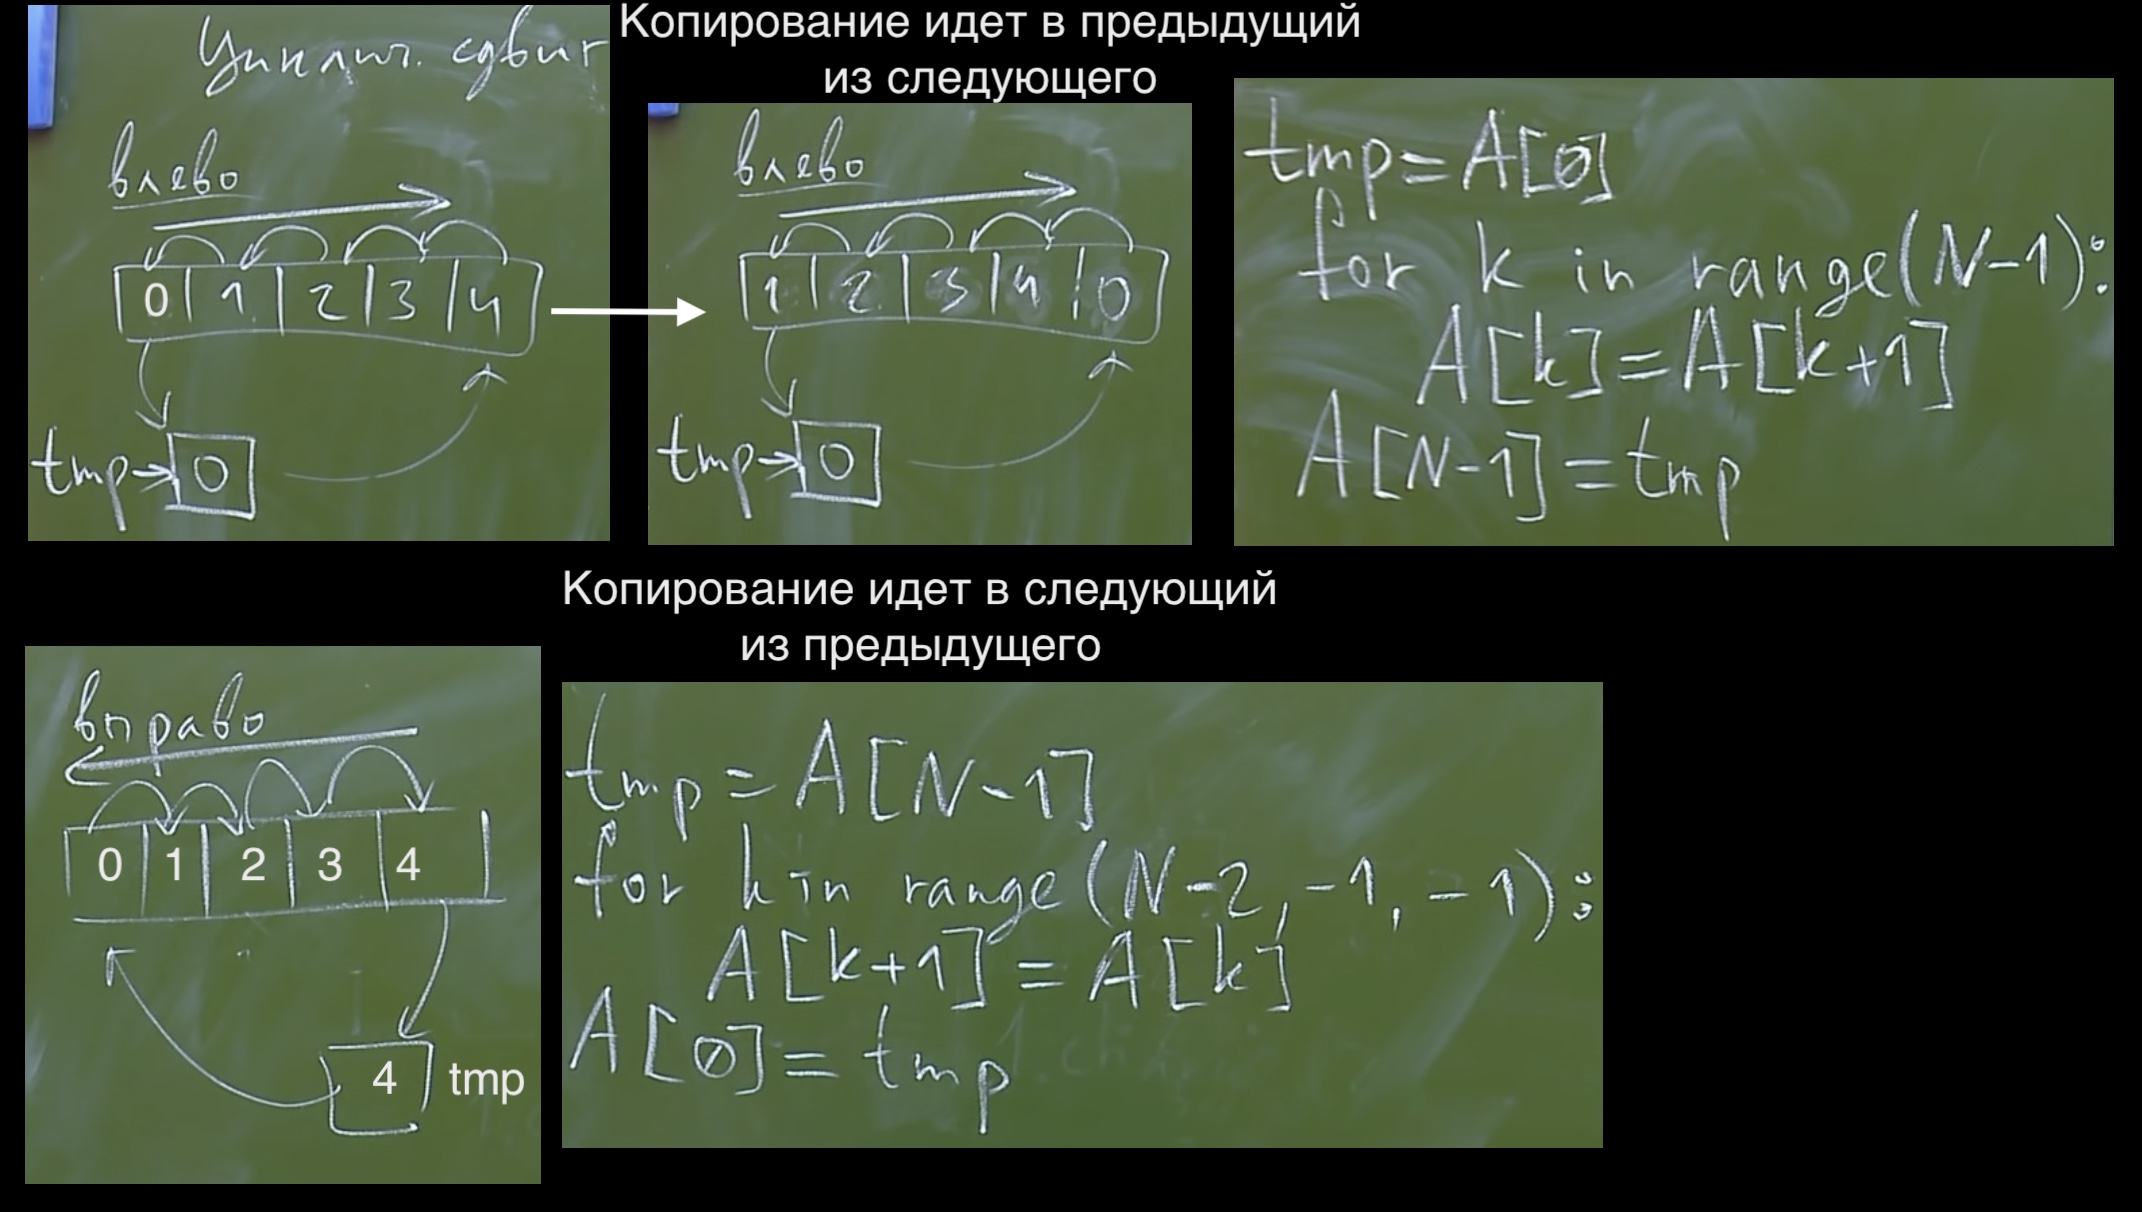 Циклич. сдвиг
Копирование идет в предыдущий
из следующего
влево
0 1 2 3 4
tmp→ 0
влево
1 2 3 4 0
tmp→ 0
tmp=A[0]
for k in range(N-1):
A[k]=A[k+1]
A[N-1]=tmp
Копирование идет в следующий
из предыдущего
вправо
0 1 2 3 4
4 tmp
tmp=A[N-1]
for k in range(N-2,-1,-1):
A[k+1]=A[k]
A[0]=tmp